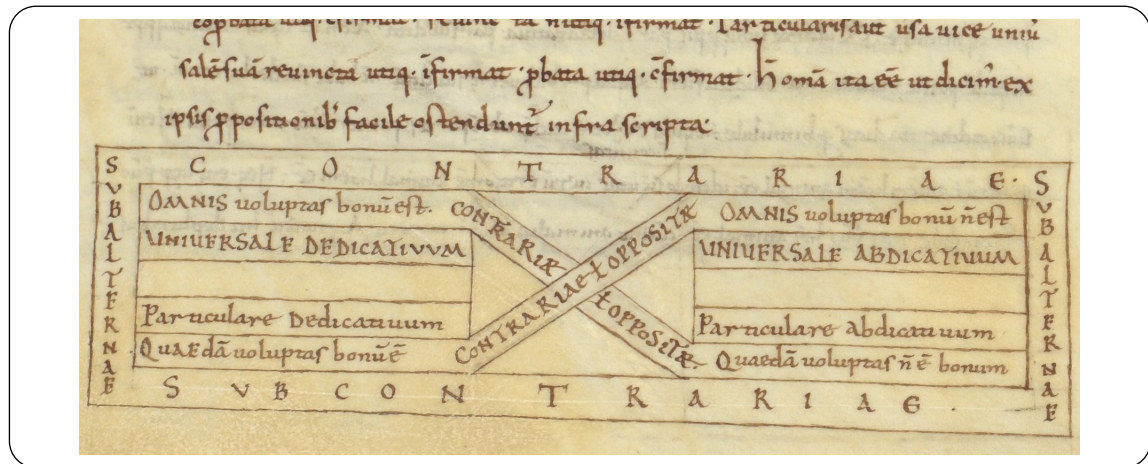 cōpbata utiq. cfirmat. seiunctā nutiq. ifirmat. Particularis aut usa uice uniu͞
salē suā reuinctā utiq. īfirmat. p̱bata utiq. c̄firmat. h̄ omā ita eē ut dicim̄ ex
ipsis p̱positionib facile ostendunt̄ infra scripta
CONTRARIAE.
SVBALTERNAE
OMNIS uoluptas bonū est.
UNIUERSALE DEDICATIUUM
Particulare Dedicatiuum
QUAEdā uoluptas bonū ē
CONTRARIÆ ł OPPOSITÆ
CONTRARIAE ł OPPOSITÆ
OMNIS uoluptas bonū n̄ est
UNIUERSALE ABDICATIUUM
Particulare abdicatiuum
Quaedā uoluptas n̄ ē bonum
SVBALTERNAE
SVBCONTRARIAE.